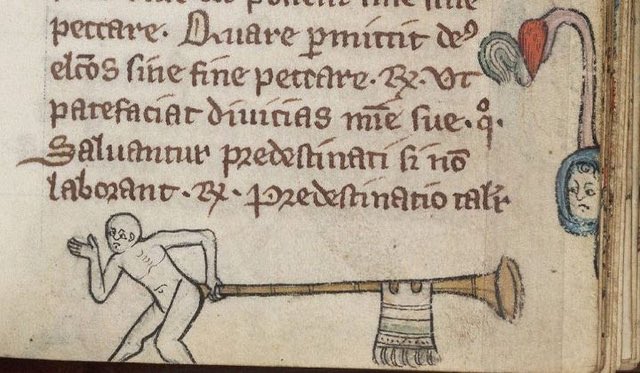 peccare. Quare ꝑmittit deꝰ
elc̄os sine fine peccare. ℞. Vt
patefaciat diuicias mīe sue. q̊.
Saluantur predestinati si nō
laborant. ℞. Predestinatio talr̄